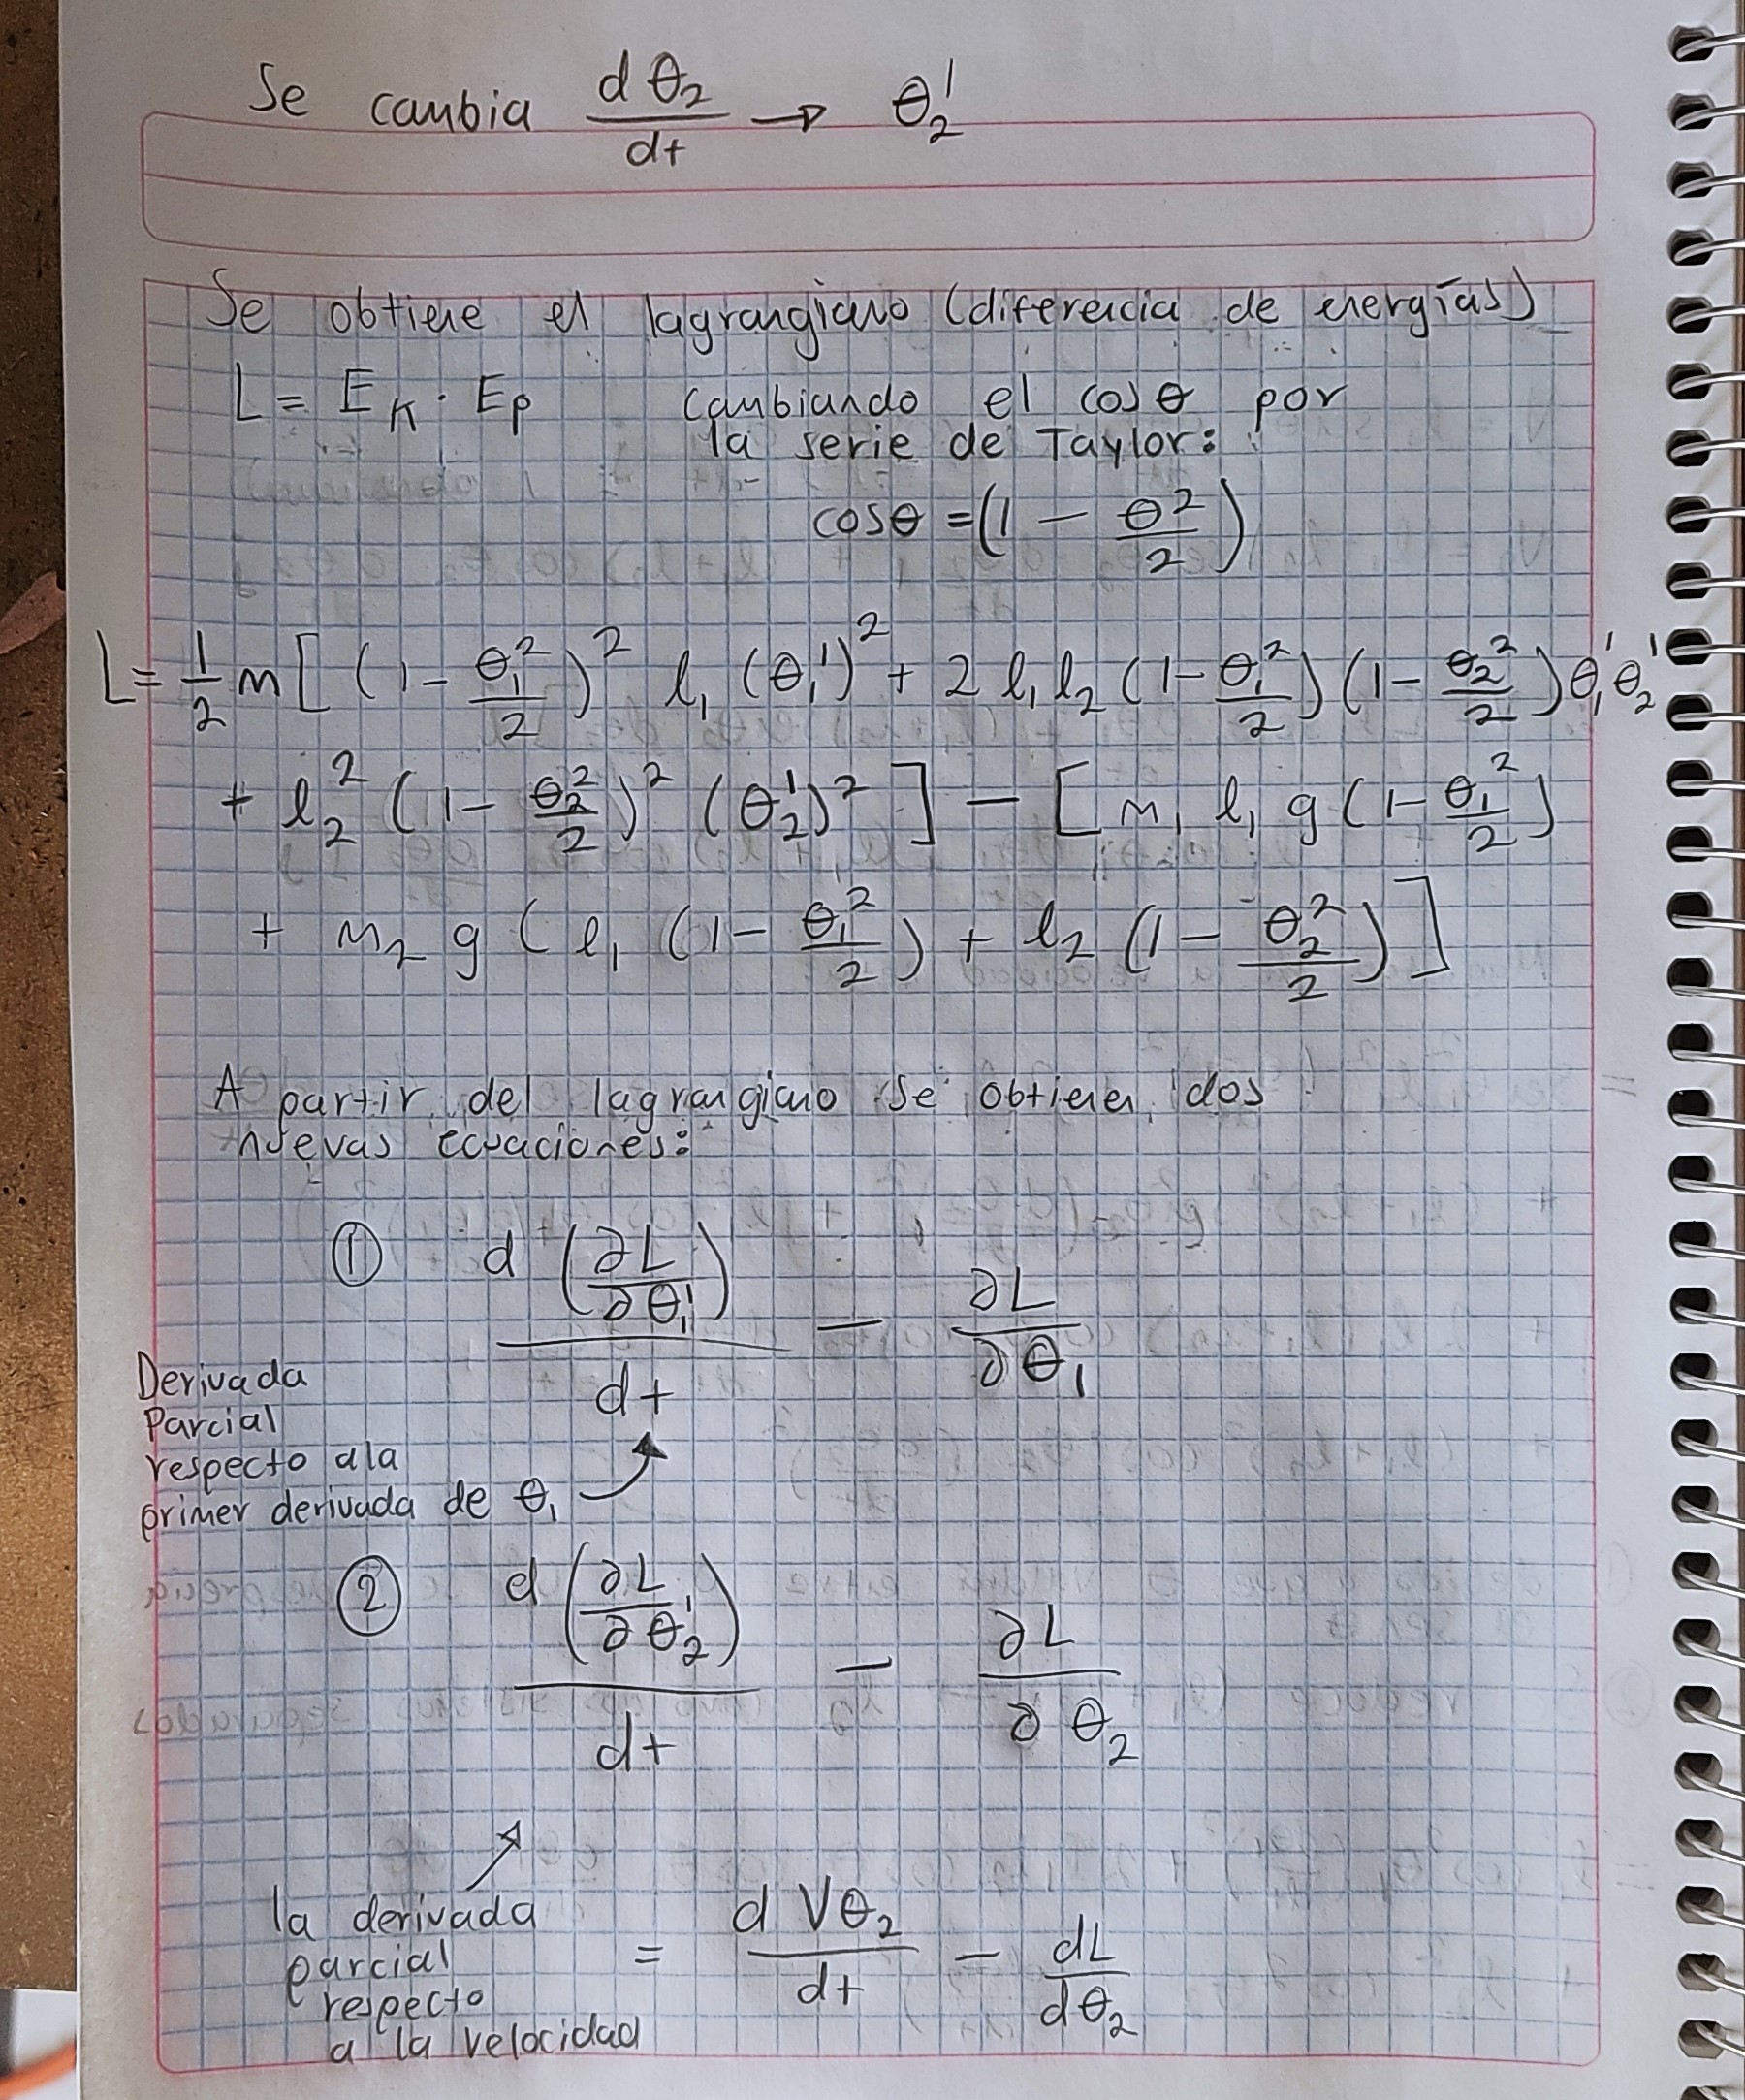 Se cambia dθ₂/dt → θ₂'
Se obtiene el lagrangiano (diferencia de energías)
L = E_K · E_P cambiando el cosθ por
la serie de Taylor:
cosθ = (1 − θ²/2)
L = 1/2 m [ (1 − θ₁²/2)² l₁ (θ₁')² + 2 l₁ l₂ (1 − θ₁²/2)(1 − θ₂²/2) θ₁' θ₂'
+ l₂² (1 − θ₂²/2)² (θ₂')² ] − [ m₁ l₁ g (1 − θ₁²/2)
+ m₂ g ( l₁ (1 − θ₁²/2) + l₂ (1 − θ₂²/2) ]
A partir del lagrangiano se obtienen dos
nuevas ecuaciones:
① d(∂L/∂θ₁')/dt − ∂L/∂θ₁
Derivada
Parcial
respecto a la
primer derivada de θ₁
② d(∂L/∂θ₂')/dt − ∂L/∂θ₂
la derivada
parcial
respecto
a la velocidad
= d Vθ₂/dt − dL/dθ₂